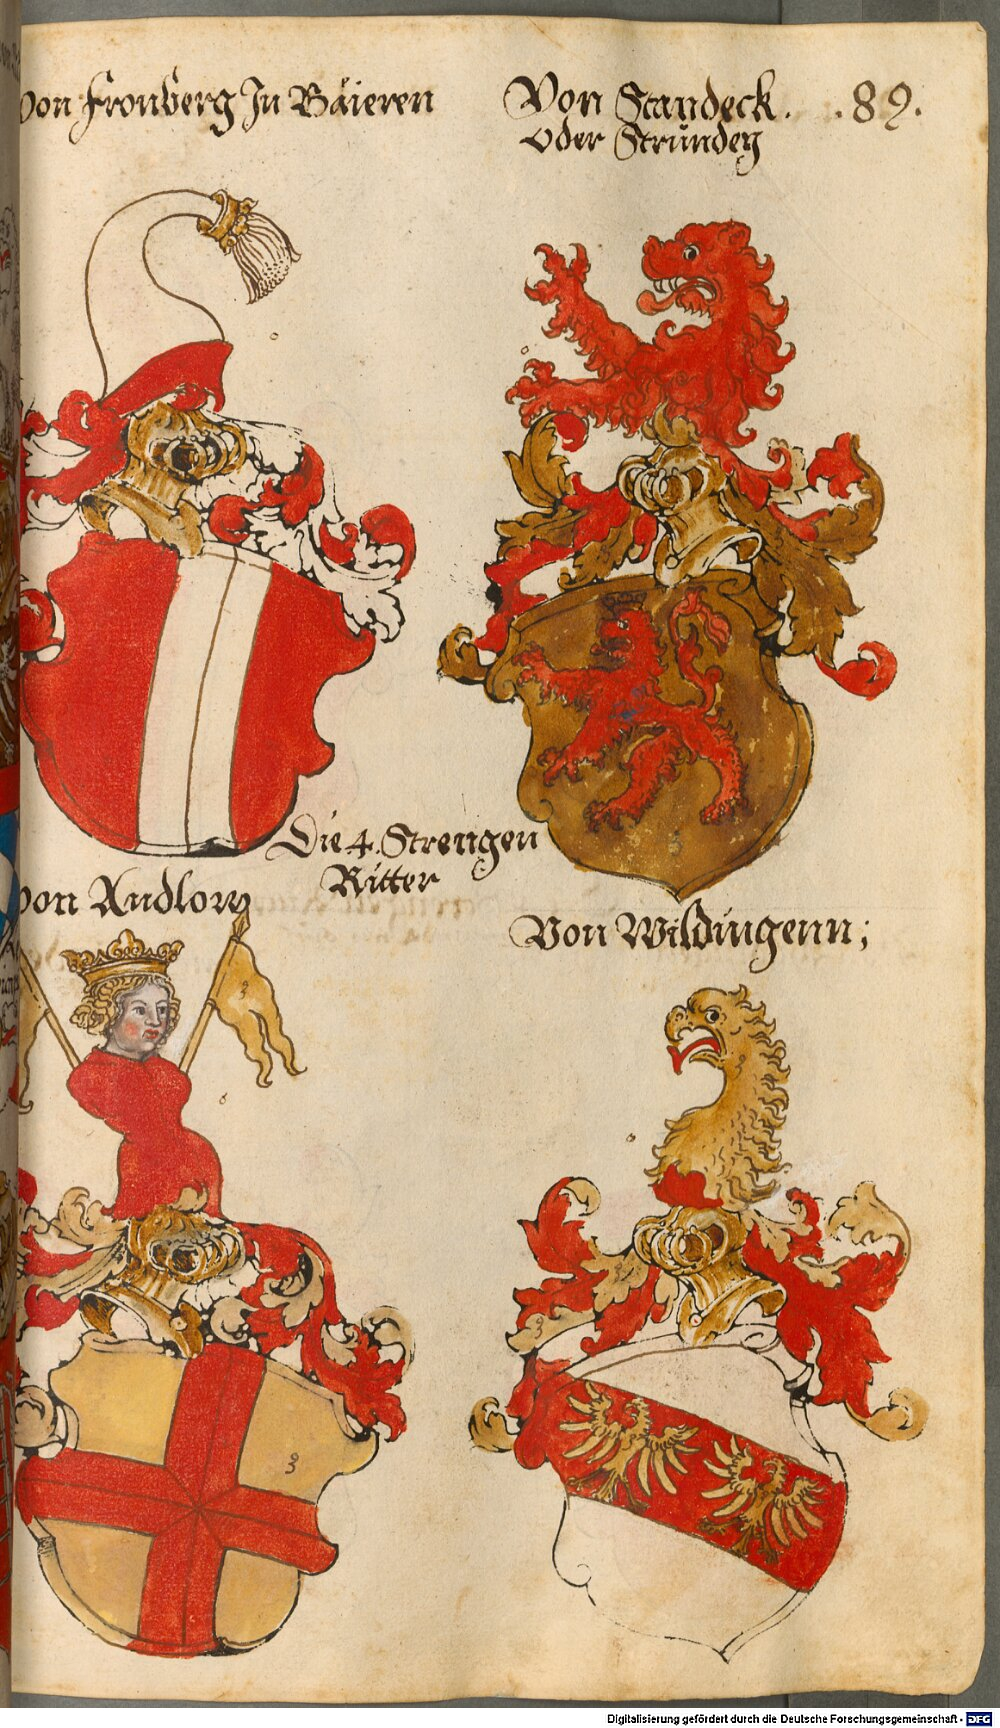 Von Fronberg Jn Bäieren
Von Standeck. .89.
Oder Stründey
Die 4. Strengen
Ritter
Von Andlow
Von Wildingenn;
Digitalisierung gefördert durch die Deutsche Forschungsgemeinschaft - DFG